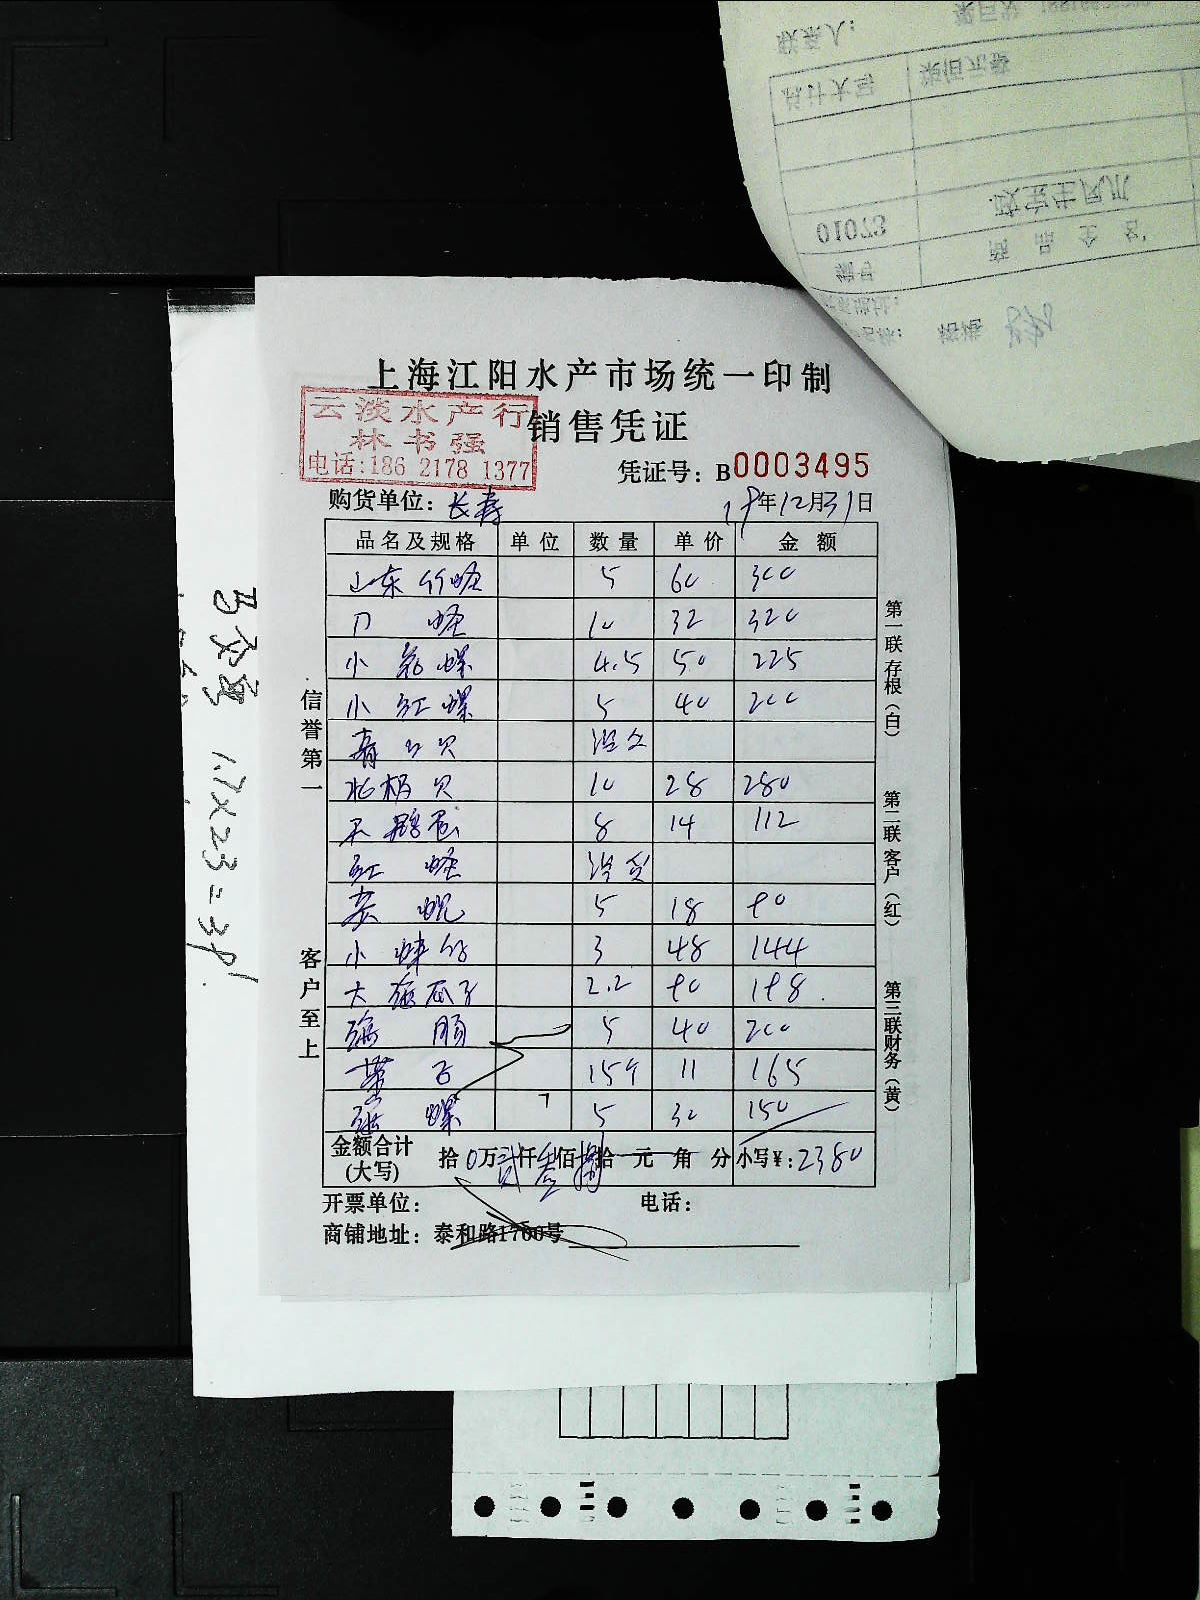 上海江阳水产市场统一印制
销售凭证
云淡水产行
林书强
电话:186 2178 1377
凭证号: B0003495
购货单位: 长寿 19年12月31日
品名及规格 单位 数量 单价 金额
山东竹蛏 5 60 300
刀蛏 10 32 320
小花螺 4.5 50 225
小红螺 5 40 200
青口贝 没
北极贝 10 28 280
天鹅蛋 8 14 112
红蛏 没货
5 18 90
小 3 48 144
大 瓜子 2.2 90 198
海肠 5 40 200
15个 11 165
螺 5 30 150
金额合计(大写) 拾0万贰仟叁佰捌拾元角分 小写¥: 2380
开票单位: 电话:
商铺地址: 泰和路1700号
信誉第一
客户至上
第一联存根(白)
第二联客户(红)
第三联财务(黄)
1.7×23=39.
编号 商品全名
01073